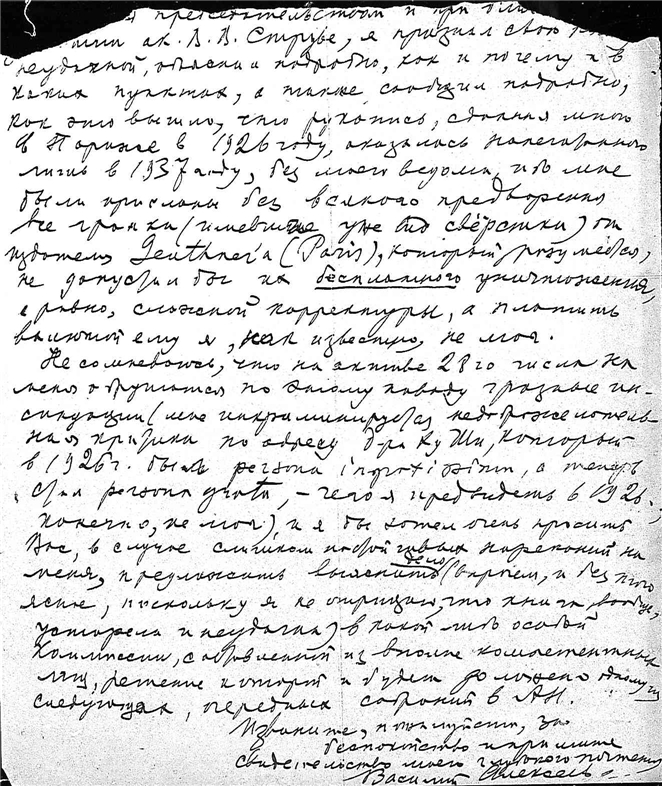 председательством и при
ак. В. В. Струве, я признал свою
неудачной, объяснил подробно, как и почему и в
каких пунктах, а также сообщил подробно,
как это вышло, что рукопись, сданная мною
в Париже в 1926 году, оказалась напечатанной
лишь в 1937 году, без моего ведома, ибо мне
были присланы без всякого предварения
все гранки (имевшие уже вид вёрстки) от
издателя Geuthner'a (Paris), который, разумеется,
не допустил бы их бесплатного уничтожения,
и равно, сложной корректуры, а платить
валютой ему я, как известно, не мог.
Не сомневаюсь, что на активе 28го числа на
меня обрушатся по этому поводу грязные ин-
синуации (мне инкриминируется недоброжелатель-
ная критика по адресу Го Мо Жо, который
в 1926 г. был persona а теперь
стал persona grata, – чего я предвидеть в 1926 г.,
конечно, не мог), и я бы хотел очень просить
Вас, в случае слишком нареканий на
меня, предложить выяснить дело (впрочем, и без того
ясное, поскольку я не отрицаю, что книга, вообще,
устарела и неудачна) в какой либо особой
Комиссии, составленной из вполне компетентных
лиц, решение которой и будет доложено одному из
следующих, очередных собраний в АН.
Извините, пожалуйста, за
беспокойство и примите
свидетельство моего глубокого почтения
Василий Алексеев